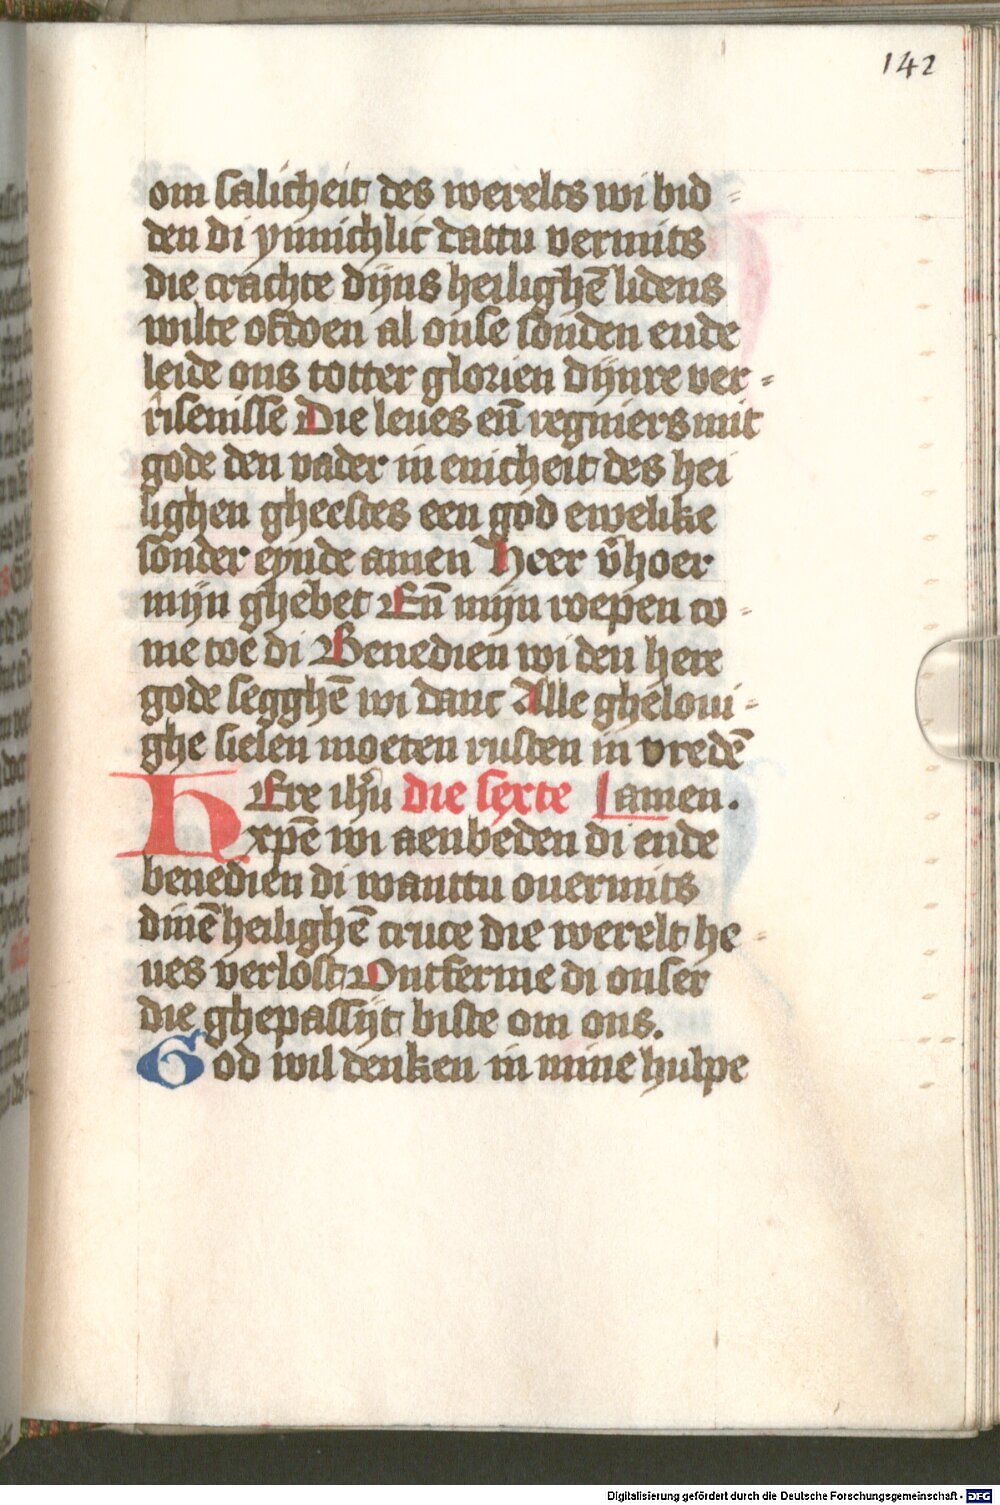 142
om salicheit des werelts wi bid-
den di ynnichlic dattu vermits
die crachte dijns heilighē lidens
wilte ofdoen al onse sonden ende
leide ons totter glorien dijnre ver-
risenisse Die leues eñ regniers mit
gode den vader in enicheit des hei
lighen gheestes een god ewelike
sonder eynde amen Heer v̄hoer
mijn ghebet Eñ mijn roepen co-
me toe di Benedien wi den here
gode segghē wi danc Alle gheloui-
ghe sielen moeten rusten in vredē
HEre ihū die sexte amen.
xpē wi aenbeden di ende
benedien di wanttu ouermits
dinē heilighē cruce die werelt he-
ues verlost Ontferme di onser
die ghepassijt biste om ons.
God wil denken in mine hulpe
Digitalisierung gefördert durch die Deutsche Forschungsgemeinschaft - DFG